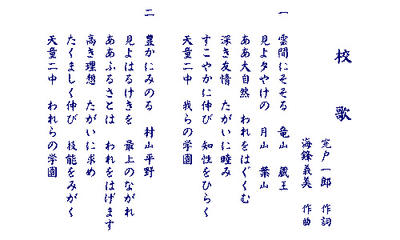 校歌
宍戸一郎 作詞
海鋒義美 作曲
一 雲間にそそる 竜山 蔵王
見よ夕やけの 月山 葉山
ああ大自然 われをはぐくむ
深き友情 たがいに睦み
すこやかに伸び 知性をひらく
天童二中 我らの学園
二 豊かにみのる 村山平野
見よはるけきを 最上のながれ
ああふるさとは われをはげます
高き理想 たがいに求め
たくましく伸び 技能をみがく
天童二中 われらの学園